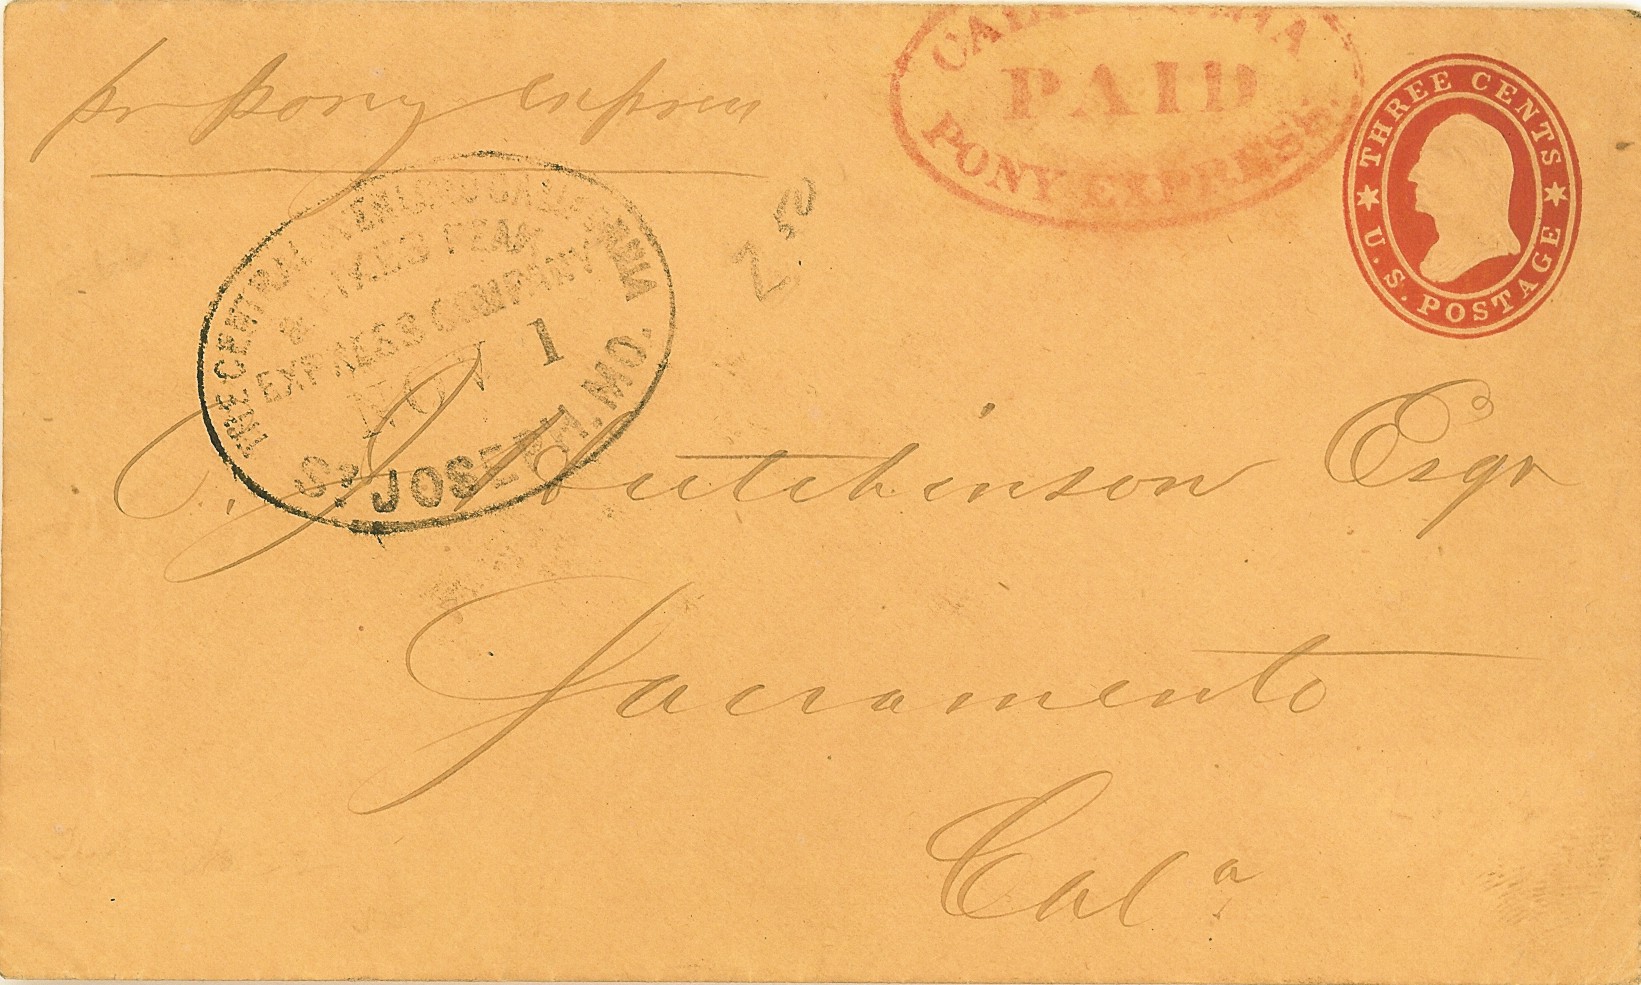 pr pony express
CALIFORNIA
PAID
PONY EXPRESS.
THREE CENTS
U.S. POSTAGE
2.50
THE CENTRAL OVERLAND CALIFORNIA
& PIKES PEAK
EXPRESS COMPANY
NOV 1
ST JOSEPH. MO.
C. J. Hutchinson Esqr
Sacramento
Cala